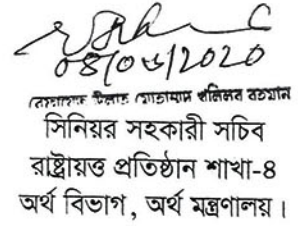 08/06/2020
সিনিয়র সহকারী সচিব
রাষ্ট্রায়ত্ত প্রতিষ্ঠান শাখা-৪
অর্থ বিভাগ, অর্থ মন্ত্রণালয়।